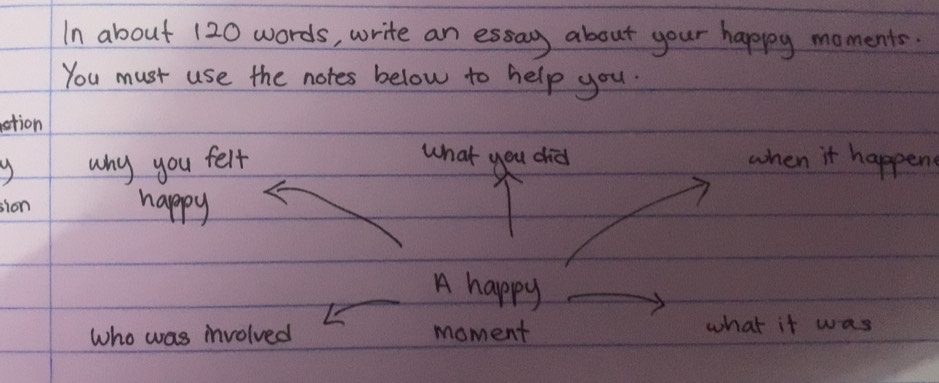 In about 120 words, write an essay about your happy moments.
You must use the notes below to help you.
why you felt
happy
what you did
when it happene
A happy
moment
who was involved
what it was